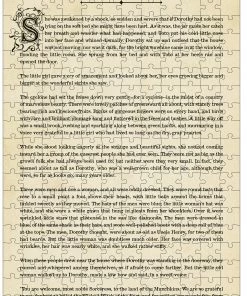 She was awakened by a shock, so sudden and severe that if Dorothy had not been
lying on the soft bed she might have been hurt. As it was, the jar made her catch
her breath and wonder what had happened; and Toto put his cold little nose
into her face and whined dismally. Dorothy sat up and noticed that the house
was not moving; nor was it dark, for the bright sunshine came in at the window,
flooding the little room. She sprang from her bed and with Toto at her heels ran and
opened the door.
The little girl gave a cry of amazement and looked about her, her eyes growing bigger and
bigger at the wonderful sights she saw.
The cyclone had set the house down very gently—for a cyclone—in the midst of a country
of marvelous beauty. There were lovely patches of greensward all about, with stately trees
bearing rich and luscious fruits. Banks of gorgeous flowers were on every hand, and birds
with rare and brilliant plumage sang and fluttered in the trees and bushes. A little way off
was a small brook, rushing and sparkling along between green banks, and murmuring in a
voice very grateful to a little girl who had lived so long on the dry, gray prairies.
While she stood looking eagerly at the strange and beautiful sights, she noticed coming
toward her a group of the queerest people she had ever seen. They were not as big as the
grown folk she had always been used to; but neither were they very small. In fact, they
seemed about as tall as Dorothy, who was a well-grown child for her age, although they
were, so far as looks go, many years older.
Three were men and one a woman, and all were oddly dressed. They wore round hats that
rose to a small point a foot above their heads, with little bells around the brims that
tinkled sweetly as they moved. The hats of the men were blue; the little woman's hat was
white, and she wore a white gown that hung in pleats from her shoulders. Over it were
sprinkled little stars that glistened in the sun like diamonds. The men were dressed in
blue, of the same shade as their hats, and wore well-polished boots with a deep roll of blue
at the tops. The men, Dorothy thought, were about as old as Uncle Henry, for two of them
had beards. But the little woman was doubtless much older. Her face was covered with
wrinkles, her hair was nearly white, and she walked rather stiffly.
When these people drew near the house where Dorothy was standing in the doorway, they
paused and whispered among themselves, as if afraid to come farther. But the little old
woman walked up to Dorothy, made a low bow and said, in a sweet voice: